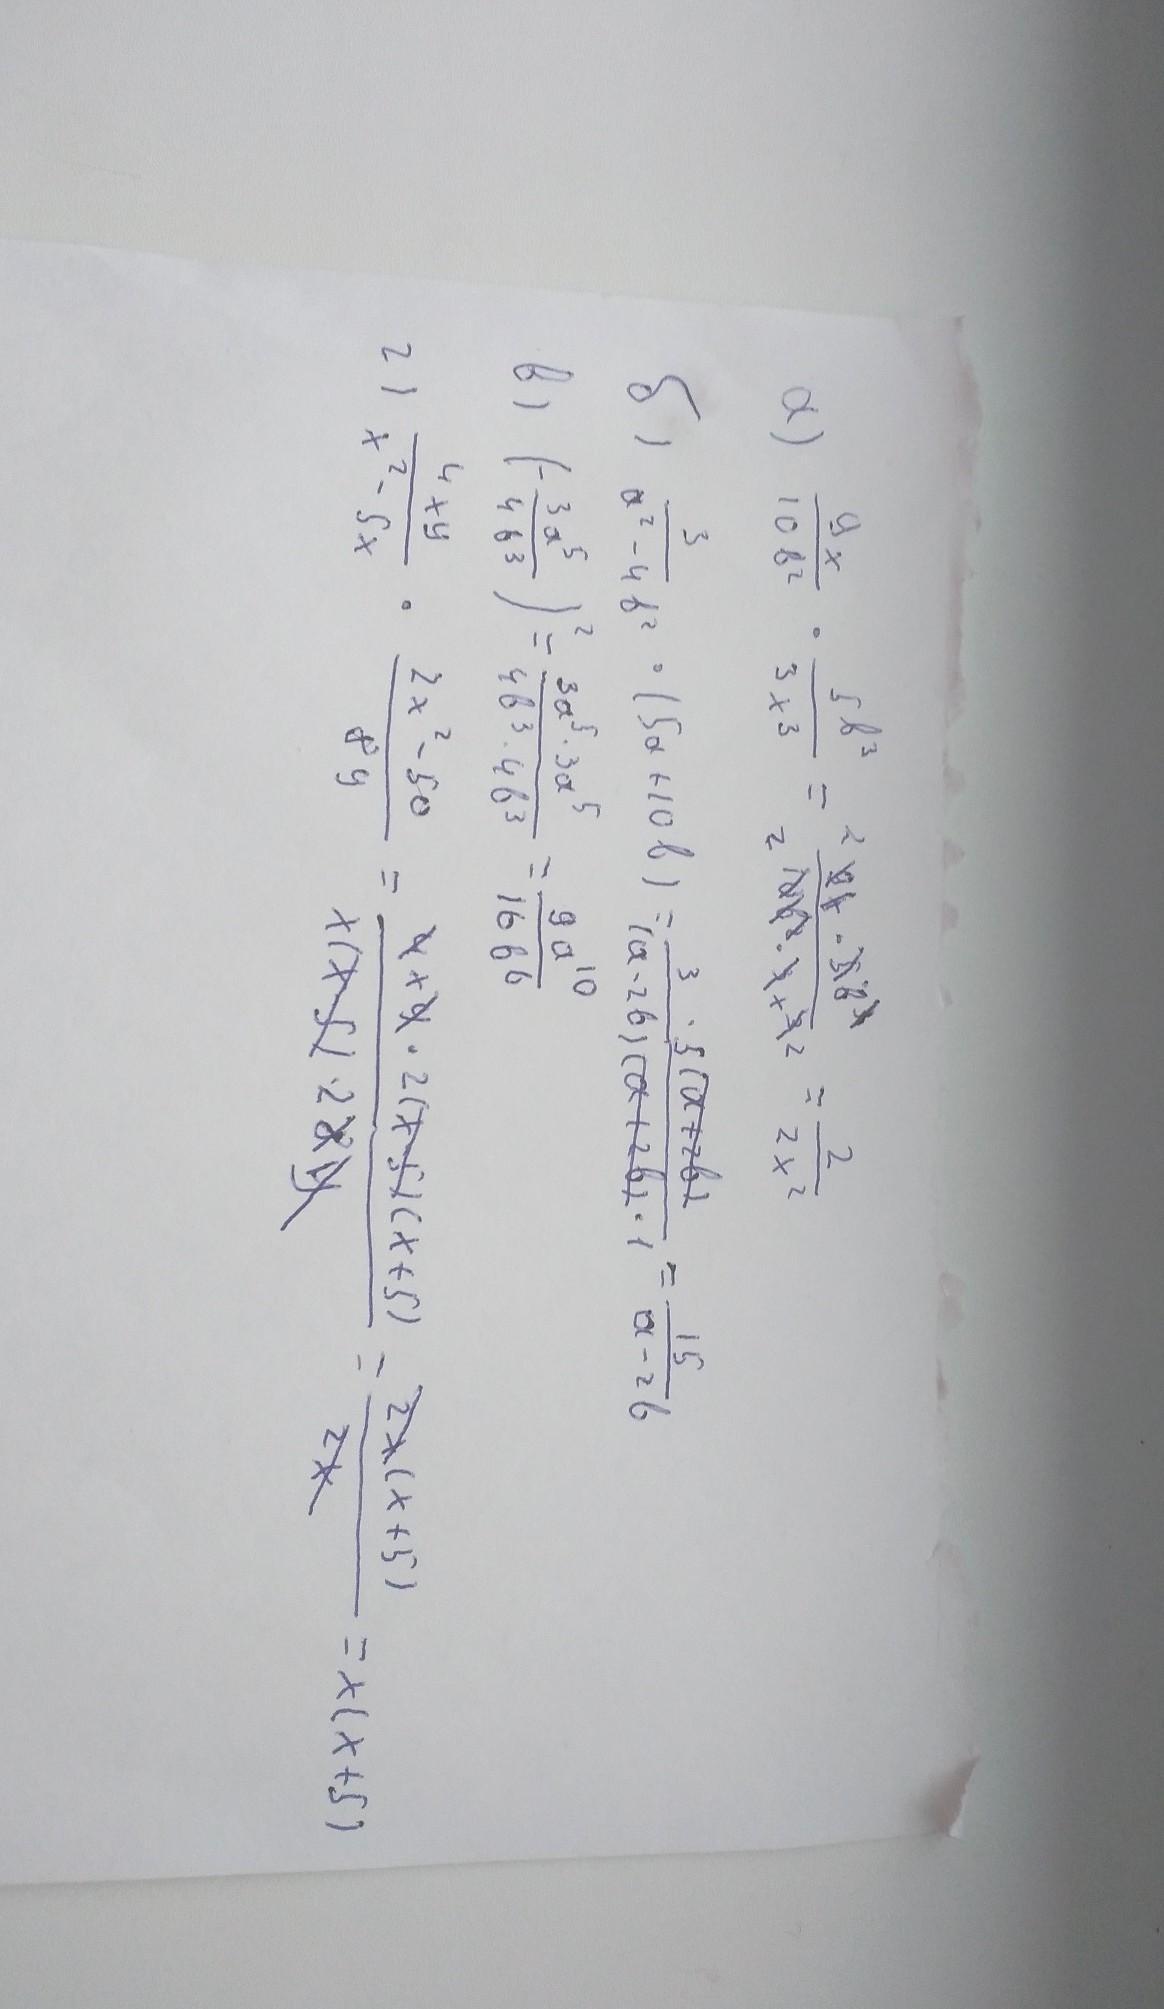 а) 9x/10b² · 5b³/3x³ = 2 9x · 5b³ / 2 10b² · 3x³ 2 = 2/2x²
б) 3/a²-4b² · (5a+10b) = 3 · 5(a+2b)/(a-2b)(a+2b) · 1 = 15/a-2b
в) (-3a⁵/4b³)² = 3a⁵·3a⁵/4b³·4b³ = 9a¹⁰/16b⁶
г) 4xy/x²-5x · 2x²-50/8y = 4xy · 2(x-5)(x+5)/x(x-5) · 2 8y = 2x(x+5)/2x = x(x+5)